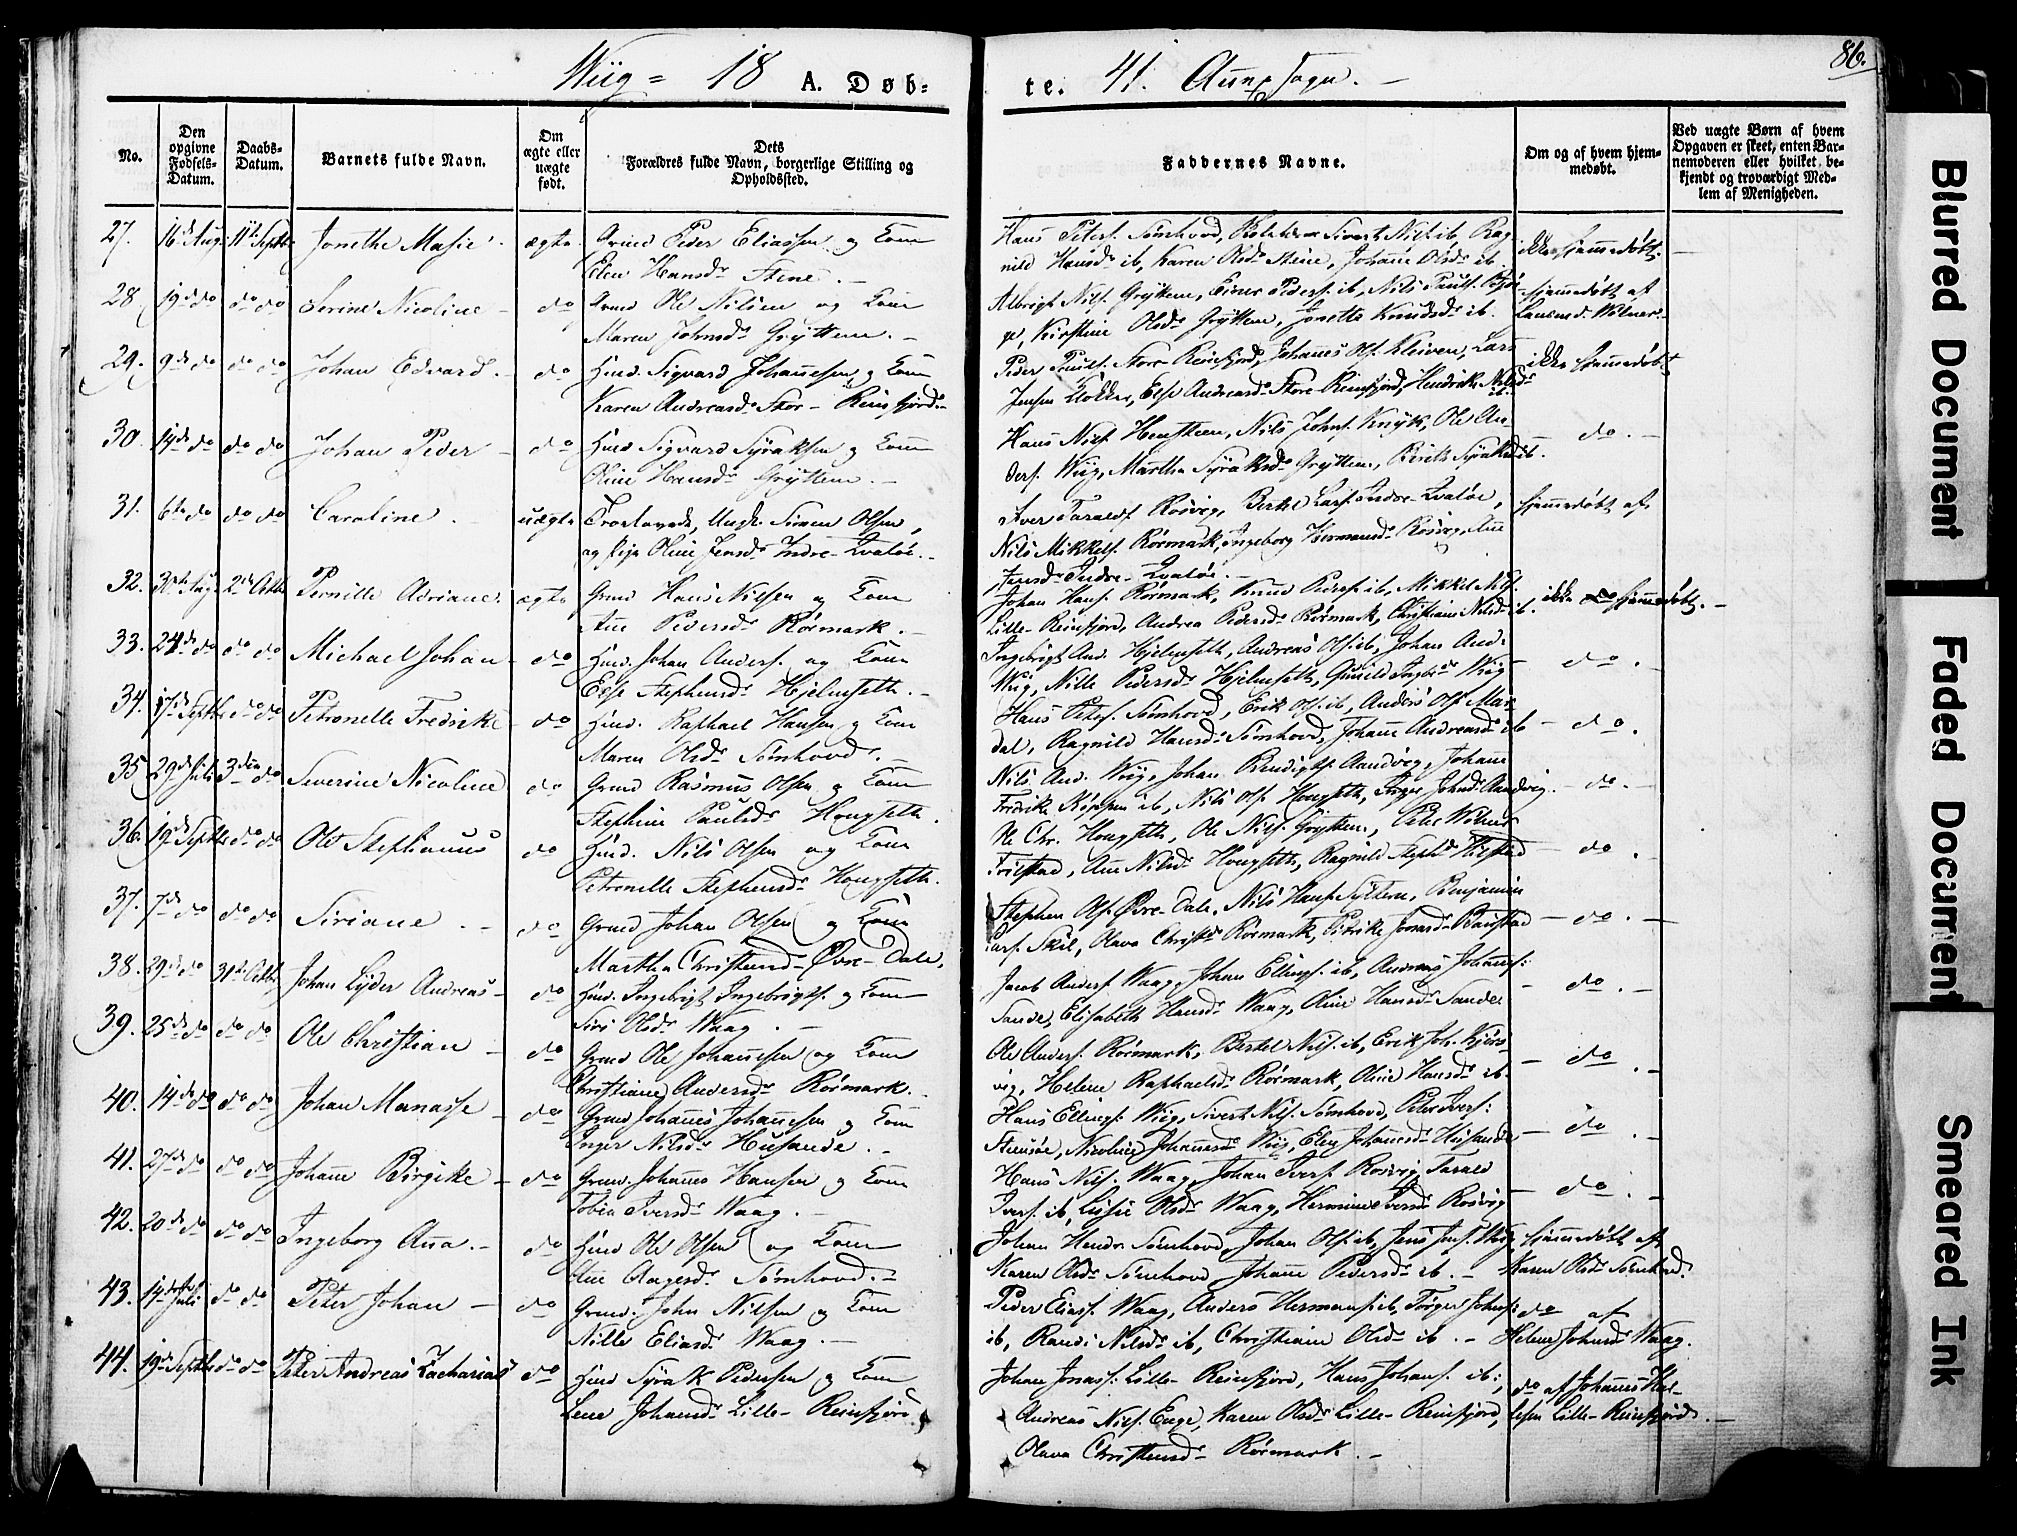 Wiig = 18 A. Døb=
te. 41. Aune Sogn. -
86.
No.
Den opgivne Fødsels-Datum.
Daabs-Datum.
Barnets fulde Navn.
Om ægte eller uægte født.
Dets Forældres fulde Navn, borgerlige Stilling og Opholdssted.
Faddernes Navne.
Om og af hvem hjemmedøbt.
Ved uægte Børn af hvem Opgaven er skeet, enten Barnemoderen eller hvilket bekjendt og troværdigt Medlem af Menigheden.
27. 16de Aug. 11te Septbr. Jonethe Masie. ægte. Peder Eliassen og Kone
Elen Hansdr Stene. -
Hans Peters. Sømhovd, Sivert Nils. ib, Rag-
nild Hansdr ib, Karen Olsdr Stene, Johanne Olsdr ib. ikke hjemmedøbt. -
28. 19de do do do Serine Nicoline - do Grmd Ole Nilsen og Kone
Maren Johnsdr Gryttem. -
Albrigt Nils. Gryttem, Einer Peders. ib, Nils Pauls.
Kirstine Olsdr Gryttem, Jonetta Knudsdr ib. hjemmedøbt af
29. 9de do do do Johan Edvard. - do Huusmd. Sigvard Johannesen og Kone
Karen Andreasdr Stor-Reinsfjord. -
Peder Pauls. Store-Reinsfjord, Johannes Ols. Kleiven, Lars
Jensen Klokker, Else Andreasdr Store-Reinsfjord, Hendrikke Nilsdr ib. ikke hjemmedøbt
30. 14de do do do Johan Peder - do Huusmd Sigvard Syraksen og Kone
Oline Hansdr Gryttem. -
Hans Nils. Hensteen, Nils Johns. Knyk, Ole An-
ders. Wiig, Martha Syraksdr Gryttem, Berith Syraksdr ib. - do. -
31. 6te do do do Caroline. uægte Trolovede, Ungk. Simen Olsen,
og Pige Oline Jensdr Indre-Kvaløe. -
Iver Taralds. Rosvig, Bertel Lars. Indre-Kvaløe,
Nils Mikkels. Rørmark, Ingeborg Hermansdr Rosvig, Ane
Jensdr Indre-Kvaløe. - hjemmedøbt af
32. 30te Aug. 2den Octbr. Pernille Adriane. ægte Grmd Hans Nilsen og Kone
Ane Pedersdr Rørmark. -
Johan Hans. Rørmark, Knud Peders. ib, Mikkel Nils.
Lille-Reinsfjord, Andrea Pedersdr Rørmark, Christiane Nilsdr ib. ikke hjemmedøbt. -
33. 24de do do do Michael Johan - do Huusmd. Johan Anders. og Kone
Else Stephensdr Hjelmseth. -
Ingebrigt And. Hjelmseth, Andreas Ols. ib, Johan And.
Wiig, Nille Pedersdr Hjelmseth, Gunild Wiig - do. -
34. 17de Septbr. do do Petronelle Fredrikke - do Huusmd. Raphael Hansen og Kone
Maren Olsdr Sømhovd. -
Hans Peters. Sømhovd, Erik Ols. ib, Anders Ols. Mar-
dal, Ragnild Hansdr Sømhovd, Johanne Andreasdr ib - do.
35. 29de Juli 3die do Severine Nicoline do Grmd Rasmus Olsen og Kone
Stephine Paulsdr Hougseth. -
Nils And. Wiig, Johan Bendigts. Aandvig, Johanne
Fredrikke Køppen ib, Nils Ols. Hougseth, Inger Johnsdr Aandvig. - do. -
36. 19de Septbr. do do Ole Stephanus do Huusmd. Nils Olsen og Kone
Petronelle Stephensdr Hougseth.
Ole Chr. Hougseth, Ole Nils. Gryttem, Peter Wolner
Trilstad, Ane Nilsdr Hougseth, Ragnild Stephsdr - do.
37. 7de do do do Siriane. - do Grmd Johan Olsen og Kone
Martha Christensd - Øvre-Dale.
Stephen Ols. Øvre-Dale, Nils Hans. Syltern, Benjamin
Lars. Skil, Olava Christdr Rørmark, Petrike Jonasdr Baustad - do. -
38. 29de do 31te Octbr. Johan Lyder Andreas - do Huusmd. Ingebrigt Ingebrigts. og Kone
Siri Olsdr Waag. -
Jacob Anders. Waag, Johan Ellings. ib, Andreas Johans.
Sande, Elisabeth Hansdr Waag, Oline Hansdr Sande. - do. -
39. 25de do do do Ole Christian - do Grmd Ole Johannesen og Kone
Christiane Andersdr Rørmark. -
Ole Anders. Rørmark, Bertel Nils. ib, Erik Joh. Kjørs-
vig, Helene Raphaelsdr Rørmark, Oline Hansdr ib - do. -
40. 14de do do do Johan Manasse - do Grmd Johannes Johannesen og Kone
Inger Nilsdr Husande. -
Hans Ellings. Wiig, Sivert Nils. Sømhovd, Peter Ivers.
Steensøe, Nicoline Johannesdr Wiig, Elen Johannesdr Husande - do. -
41. 27de do do do Johanne Birgitte - do Grmd. Johannes Hansen og Kone
Tobia Iversdr Waag. -
Hans Nils. Waag, Johan Ivers. Rosvig, Tarald
Ivers. ib, Lisse Olsdr Waag, Hermine Iversdr Rosvig - do. -
42. 20de do do do Ingeborg Ana. - do Huusmd Ole Olsen og Kone
Ane Aagesdr Sømhovd. -
Johan Hendr. Sømhovd, Johan Ols. ib, Jens Jens. Wiig,
Karen Olsdr Sømhovd, Johanne Pedersdr ib. - hjemmedøbt af
Karen Olsdr Sømhovd.
43. 14de Juli do do Peter Johan - do Grmd. John Nilsen og Kone
Nille Eliasdr Waag. -
Peder Elias. Waag, Anders Hermans. ib, Torger Johns.
ib, Randi Nilsdr ib, Christiane Olsdr ib. - do af
Helene Johnsdr Waag.
44. 19de Septbr. do do Peter Andreas Zacharias do Huusmd Syrak Pedersen og Kone
Lene Johansdr Lille-Reinsfjord
Johan Jonas. Lille-Reinsfjord, Hans Johans. ib.,
Andreas Nils. Enge, Karen Olsdr Lille-Reinsfjord,
Olava Christensdr Rørmark. - do af Johannes
Lille-Reinsfjord. -
Blurred Document
Faded Document
Smeared Ink